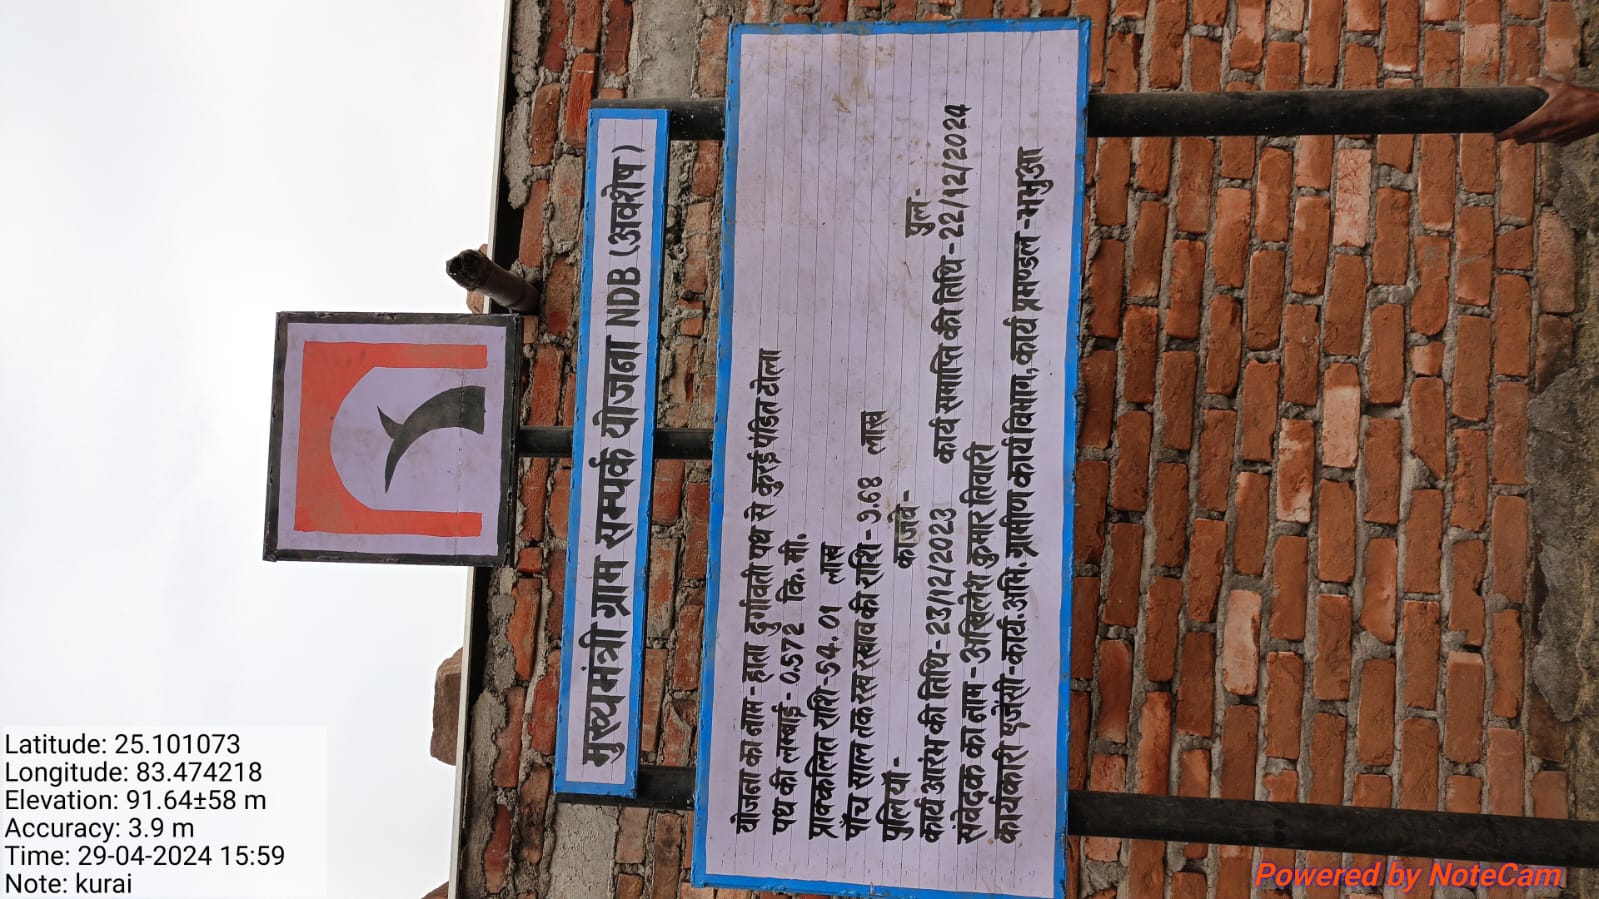 मुख्यमंत्री ग्राम सम्पर्क योजना NDB (अवशेष)
योजना का नाम - हाता दुर्गावती पथ से कुरई पंडित टोला
पथ की लम्बाई - 0.572 कि. मी.
प्राक्कलित राशि - 54.01 लाख
पाँच साल तक रख रखाव की राशि - 9.68 लाख
पुलिया - काजवे - पुल -
कार्य आरंभ की तिथि - 23/12/2023 कार्य समाप्ति की तिथि - 22/12/2024
संवेदक का नाम - अखिलेश कुमार तिवारी
कार्यकारी एजेंसी - कार्य. अभि. ग्रामीण कार्य विभाग, कार्य प्रमण्डल - भभुआ
Latitude: 25.101073
Longitude: 83.474218
Elevation: 91.64±58 m
Accuracy: 3.9 m
Time: 29-04-2024 15:59
Note: kurai
Powered by NoteCam